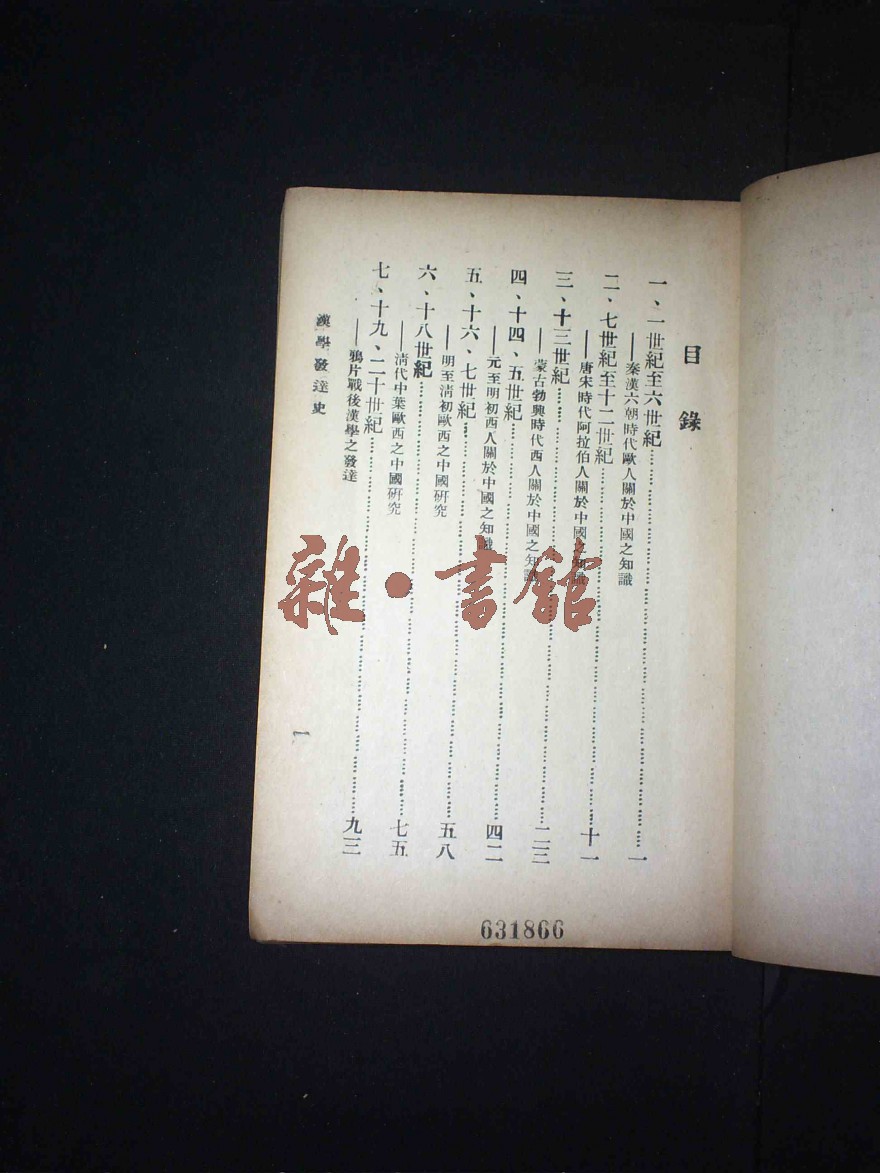 目錄
一、一世紀至六世紀……一
——秦漢六朝時代歐人關於中國之知識
二、七世紀至十二世紀……十一
——唐宋時代阿拉伯人關於中國之知識
三、十三世紀……二三
——蒙古勃興時代西人關於中國之知識
四、十四、五世紀……四二
——元至明初西人關於中國之知識
五、十六、七世紀……五八
——明至淸初歐西之中國硏究
六、十八世紀……七五
——淸代中葉歐西之中國硏究
七、十九、二十世紀……九三
——鴉片戰後漢學之發達
漢學發達史
一
631866
雜·書館